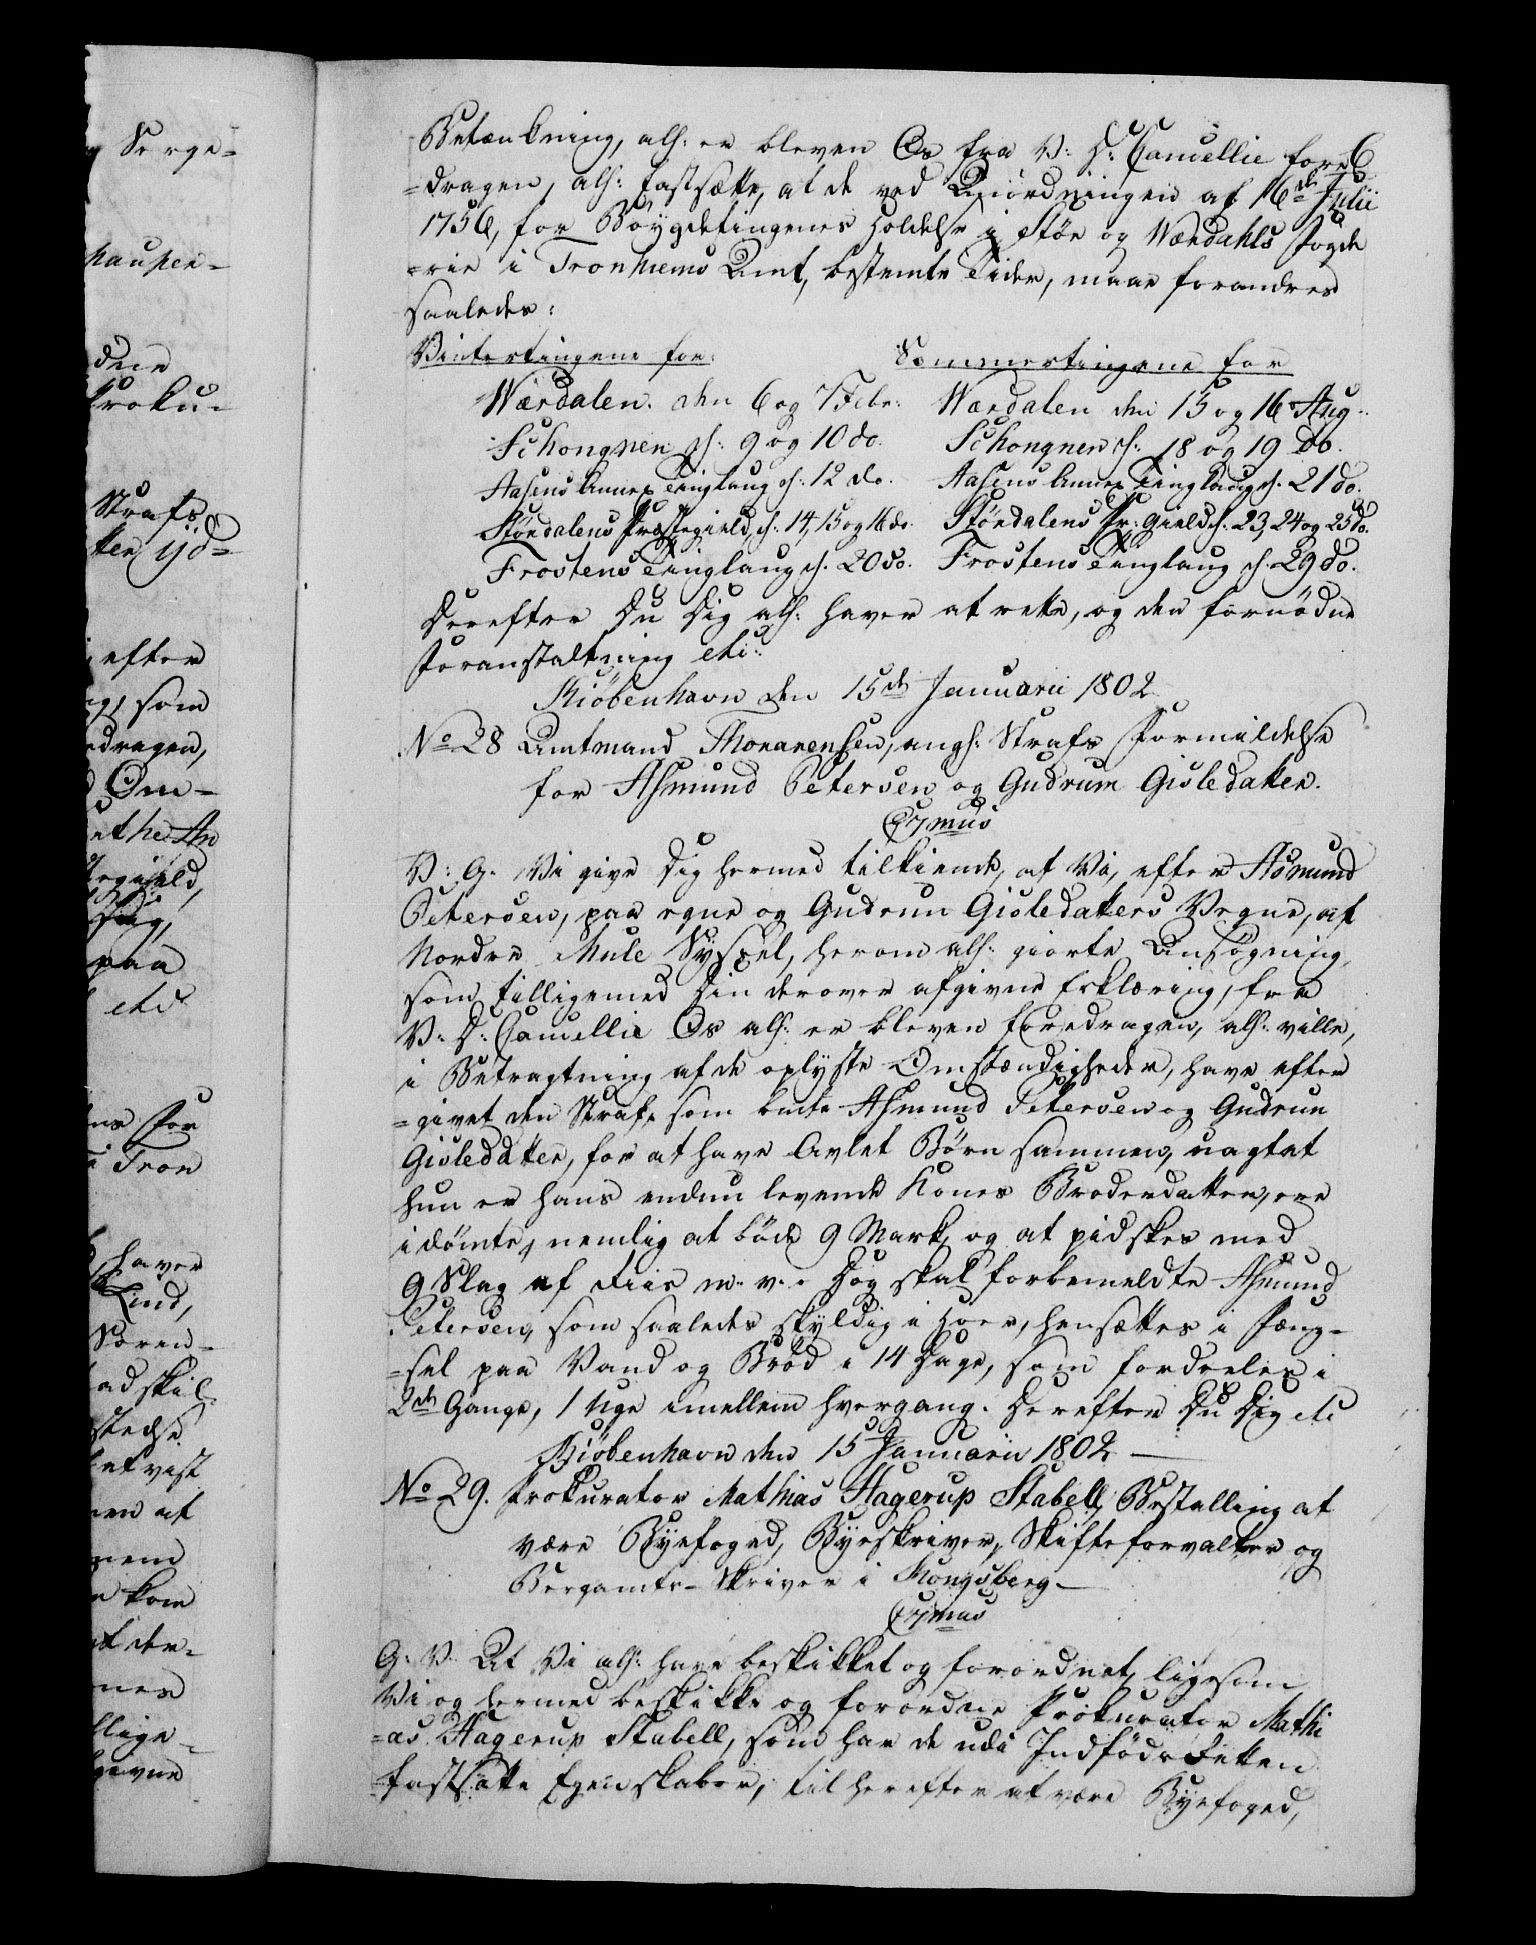 Betænkning, alh: er bleven Os fra V: D: Cancellie fore 6
=dragen, alh: fastsætte, at de ved Anordningen af 16de Julii
1756, for Bøygdetingenes Holdelse i Stör og Wærdahls Fogde
=rie i Tronhiems Amt, bestemte Tider, maae forandres
saaledes:
Vintertingene for:
Sommertingene for
Wærdalen. den 6 og 7 Febr: Wærdalen den 15 og 16 Aug:
Schongnen d: 9 og 10 do. Schongnen d: 18 og 19 do.
Aasens Annex Tinglaug d: 12 do. Aasens Annex Tinglaug d. 21 do.
Stördalens Præstegield, d. 14, 15 og 16 do. Stördalens Pr: Gield d. 23, 24 og 25 do.
Frostens Tinglaug d. 20 do. Frostens Tinglaug d. 29 do.
Derefter Du Dig alh: haver at rette, og den fornödne
Foranstaltning etc:
Kiöbenhavn den 15de Januarii 1802
No 28 Amtmand Thorarensen, angh: Strafs Formildelse
for Asmund Petersen og Gudrum Gisledatter.
C7mus
V: G. Vi give Dig hermed tilkiende, at Vi, efter Asmund
Petersen, paa egne og Gudrun Gisledatters Vegne, af
Nordre Mule Syssel, herom alh: giorte Ansøgning,
som tilligemed Din derover afgivne Erklæring, fra
V: D: Cancellie Os alh: er bleven foredragen, alh: ville,
i Betragtning af de oplyste Omstændigheder, have efter
=givet den Straf, som bemte Asmund Petersen og Gudrun
Gisledatter, for at have Avlet Börn sammen, uagtet
hun er hans endnu levende Kones Broderdatter, ere
idömte, nemlig at böde 9 Mark, og at pidskes med
9 Slag af Riis m. v. Dog skal forbemeldte Asmund
Petersen, som saaledes skyldig i Hoer, hensættes i Fæng=
=sel paa Vand og Bröd i 14 Dage, som fordeeles i
2de Gange, 1 Uge imellem hvergang. Derefter Du Dig etc
Kiöbenhavn den 15 Januarii 1802
No 29. Prokurator Mathias Hagerup Stabell, Bestalling at
være Byefoged, Byeskriver, Skifteforvalter og
Bergamts-Skriver i Kongsberg.
C7mus
G: V. At Vi alh: have beskikket og forordnet, ligesom
Vi og hermed beskikke og forordne Prokurator Mathi
=as Hagerup Stabell, som har de udi Indföds Retten
fastsatte Egenskaber, til herefter at være Byefoged,